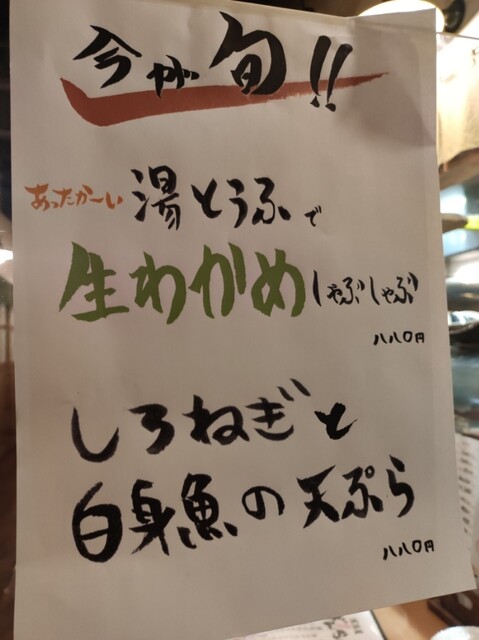 今が旬!!
あったかーい 湯とうふで
生わかめしゃぶしゃぶ
八八〇円
しろねぎと
白身魚の天ぷら
八八〇円